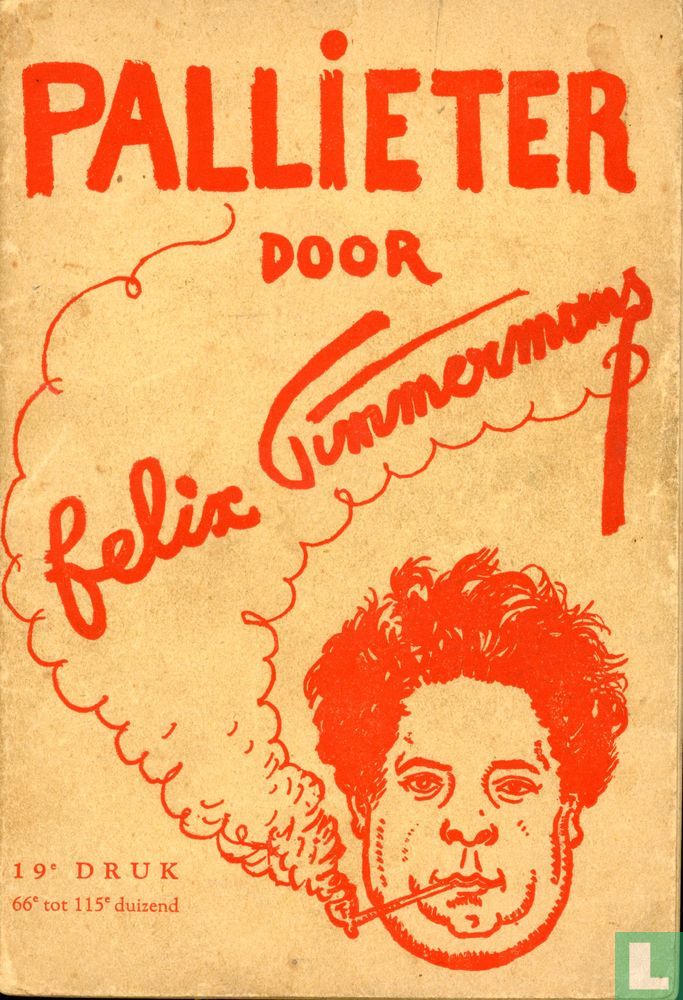 PALLiETER
DOOR
felix Timmermans
19e DRUK
66e tot 115e duizend
L